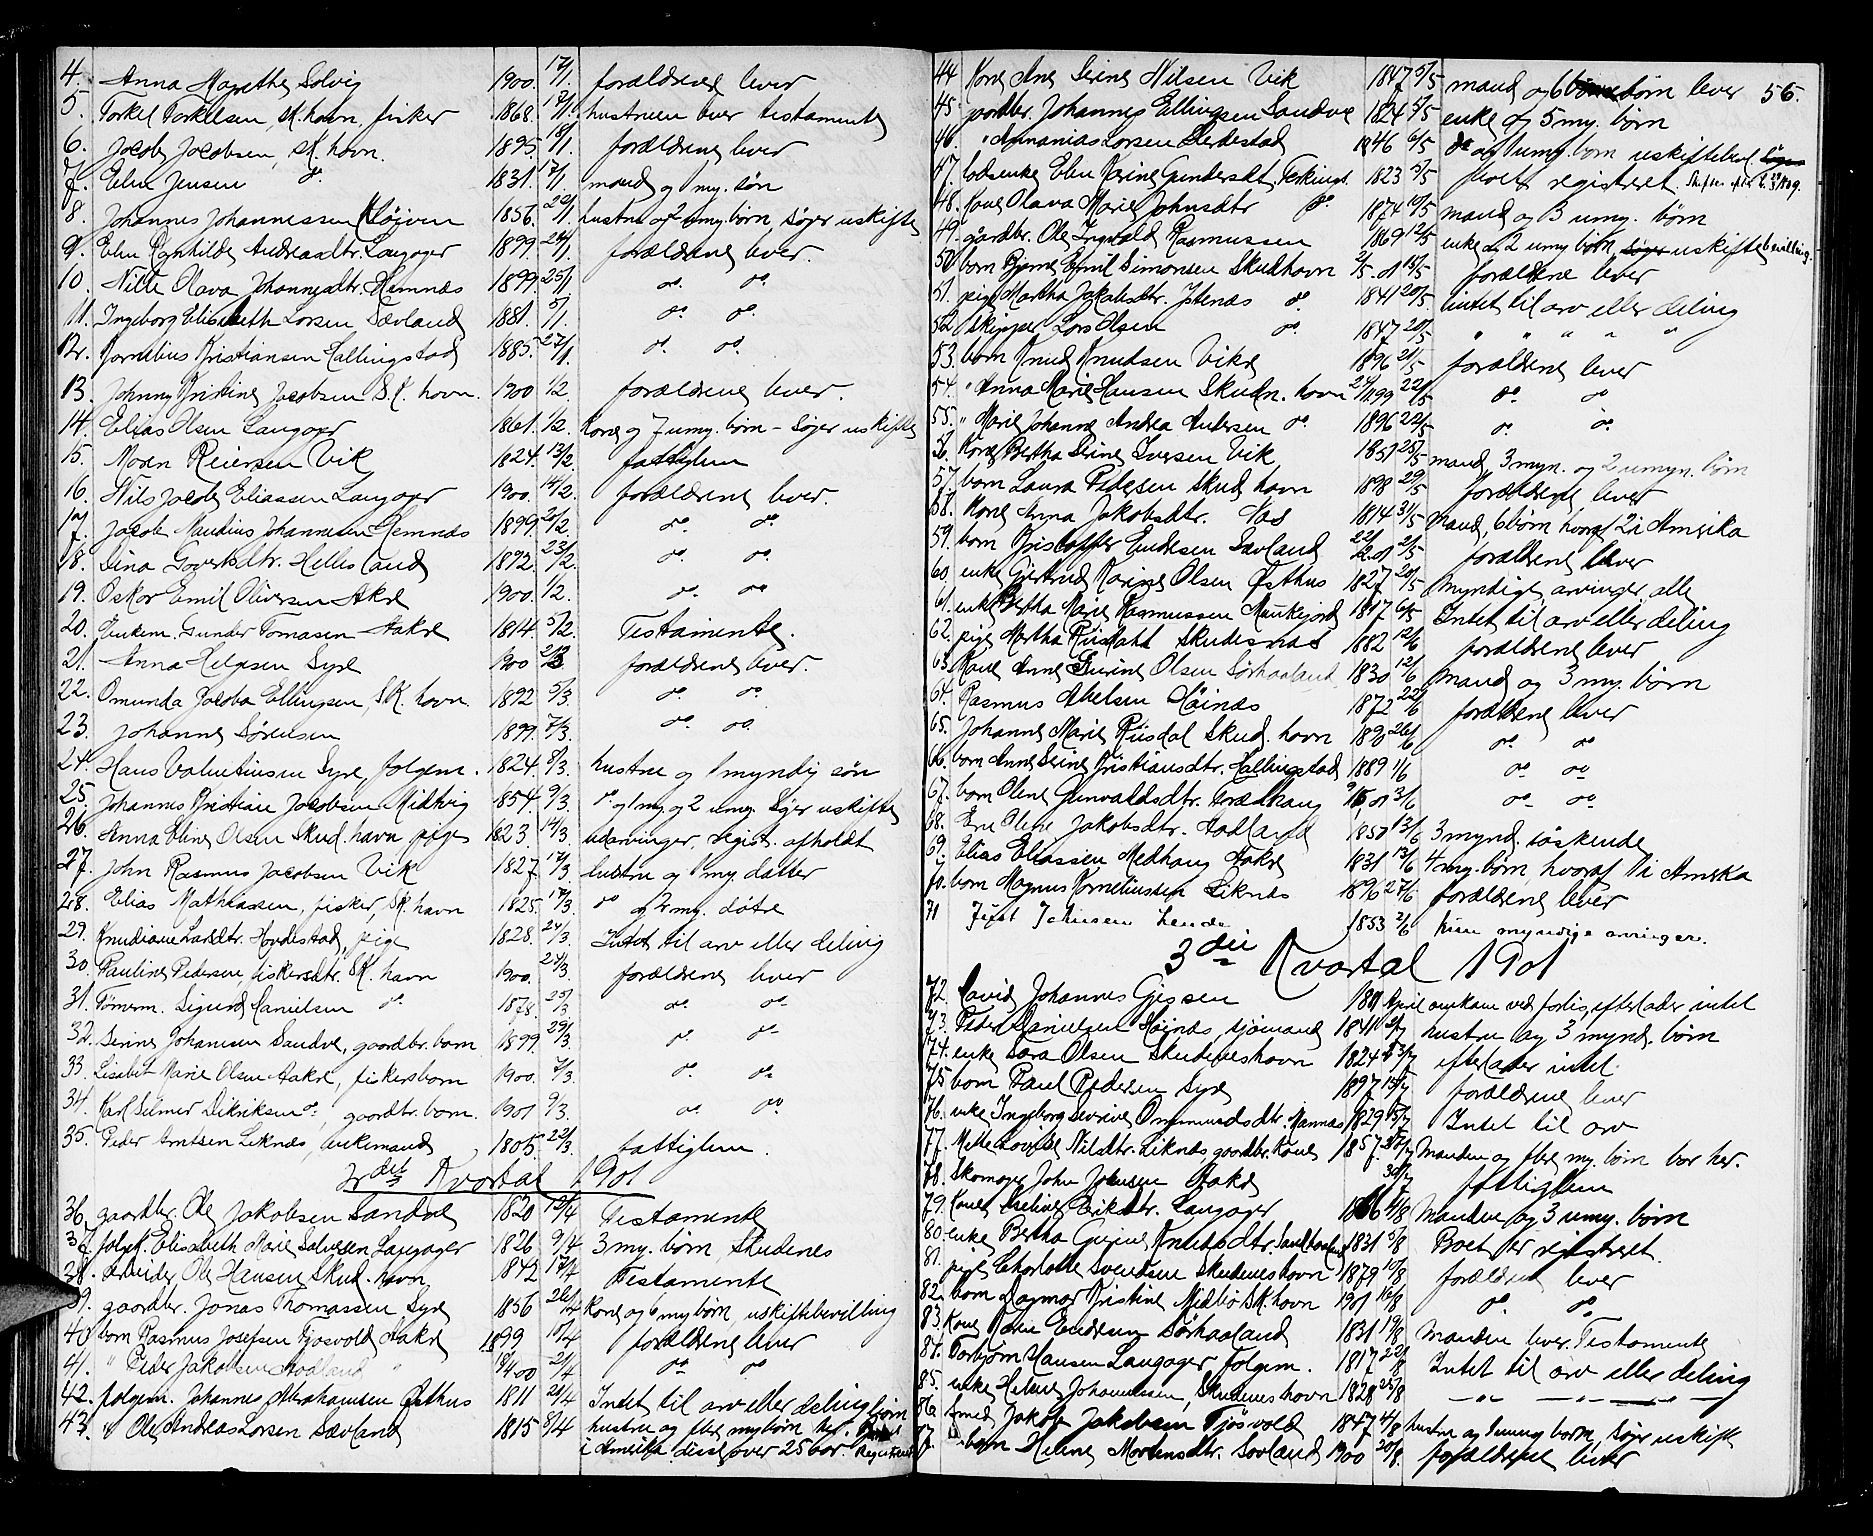 4. Anna Magrethe Solvig 1900. 17/1. forældrene lever
5. Torkel Torkelsen, Sk.havn, fisker 1868. 17/1. hustruen lever testamente
6. Jacob Jacobsen, Sk. havn. 1895. 18/1. forældrene lever
7. Elen Jensen do. 1831. 17/1. mand og 1 my. søn
8. Johannes Johannessen 1856. 22/1. hustru og 2 umy. børn, søger uskifte
9. Elen Ragnhilde Andreasdtr. Langager 1899. 24/1. forældrene lever.
10. Nille Olava Johannesdtr. Hemnæs 1899. 25/1. do. do.
11. Ingeborg Elisabeth Larsen Sævland 1881. 5/1. do. do.
12. Kornelius Kristiansen Hallingstad 1885. 27/1. do. do.
13. Johnny Kristine Jacobsen S.K. havn. 1900 1/2. forældrene lever.
14. Elias Olsen Langager 1861. 1/2. Kone og 7 umy. børn - Søger uskifte
15. Moen Reiersen Vik 1824. 13/2. fattiglem
16. Nils Jacob Eliassen Langager 1900. 14/2. forældrene lever.
17. Jacob Naudius Johannesen Hemnæs 1899. 20/2. do. do.
18. Sina Govertsdtr. Hellesland 1892. 23/2. do. do.
19. Oskar Emil Oliversen Akre 1900. 1/2. do. do.
20. Enkem. Gunder Tomasen Aakre 1814. 5/2. Testamente.
21. Anna Helgesen Syre 1900 forældrene lever.
22. Omunda Jacoba Ellingsen, SK. havn. 1892 5/3. do. do.
23. Johanne Sørensen 1899. 7/3. do. do.
24. Hans Valentinsen Syre, folgem. 1824. 8/3. hustru og 1 myndig søn
25. Johannes Kristian Jacobsen Midtvig 1854. 9/3. do. og 1 my og 2 umy. Søger uskifte
26. Anna Eline Olsen Skud. havn pige 1823. 14/3. udarvinger, regist. afholdt
27. John Rasmus Jacobsen Vik 1827. 17/3. hustru og 1 my. datter
28. Elias Mathiassen, fisker, SK. havn 1825. 17/3. do og 4 my. døtre
29. Knudiane Larsdtr. Hordestad, pige 1828. 24/3. Intet til arv eller deling
30. Pauline Pedersen, fiskersdtr. SK. havn 1900. 27/3. forældrene lever
31. Tømerm. Sigurd Danielsen do. 1878. 25/3 do. do.
32. Serine Johansen Sandve, gaardbr. barn 1899. 29/3. do. do.
33. Lisebet Marie Olsen Aakre, fiskersbarn 1900. 7/3. do. do.
34. Karl Selmer Dikriksen do., gaardbr. barn. 1901 9/3. do. do.
35. Peder Arntsen Liknæs, enkemand 1805. 22/3. fattiglem.
2det Kvartal 1901
36. gaardbr. Ole Jakobsen Sandve 1820 13/4 Testamente
37. folgek. Elisabeth Marie Salvesen Langager 1826 9/4 3 my. børn, Skudenes
38. Arbeider Ole Hansen Skud. havn, 1842 17/4 Testamente
39. gaardbr. Jonas Thomassen Syre 1856 26/4 Kone og 6 my børn, uskiftebevilling
40. barn Rasmus Josefsen Tjosvold Aakre 1899 18/4 forældrene lever
41. " Peder Jakobsen Hodland " 18/4 00 21/4 do. do.
42. folgem. Johannes Abrahamsen Østhus 1811 21/4 Intet til arv eller deling
43. " Ole Andreas Larsen Sævland 1815 8/4 hustru og flere my børn her. børn
i Amerika disse over 25 aar. Registreret
44 Kone Ane Serine Nilsen Vik 1847 5/5 mand og 6 børn lever 56.
45. gaardbr. Johannes Ellingsen Sandve 1824 5/5 enke og 5 my. børn
46. " Annanias Larsen Hordestad 1846 6/5 do og 1 umy. barn uskiftebev.
47. lodsenke Elen Karine Gundersdt. Ferkingst. 1823 5/5 Boet registreret.
48. Kone Olava Marie Johnsdtr do. 1874 10/5 mand og 3 umy. børn
49. gaardbr. Ole Ingvald Rasmussen 1869 12/5 enke og 2 umy børn, uskiftebevilling
50. barn Bjarne Emil Simonsen Skudhavn 2/5. 01 15/5 forældrene lever
51. pige Martha Jakobsdtr. do. 1841 20/5 intet til arv eller deling
52. skipper Lars Olsen do. 1847 20/5 " " " " "
53. barn Knud Knudsen Vikre 1896 21/5 forældrene lever
54. " Anna Marie Hansen Skudn. havn 99 22/5 do. do.
55. " Marie Johanne Andrea Andersen do. 1896 22/5 do. do.
56. Kone Bertha Serine Iversen Vik 1851 25/5 mand, 3 myn. og 2 umyn. børn
57. barn Laura Pedersen Skud havn 1898 29/5 forældrene lever
58. Kone Anna Jakobsdtr. Aas 1814 31/5 Mand, 6 børn hvoraf 2 i Amerika
59. barn Kristoffer Endresen Sævland 2/5 forældrene lever
60. enke Gjertrud Karine Olsen Østhus 1827 20/5 myndige, arvinger, alle
61. enke Bertha Marie Rasmussen Munkejord 1817 6/5 Intet til arv eller deling
62. pige Martha Skudesnæs 1882 12/6 forældrene lever
63. Kone Anne Gurine Olsen Sørhaaland 1830 12/6 Mand og 3 my. børn
64. Rasmus Abelsen Høinæs 1872 22/6 forældrene lever
65. Johanne Marie Riisdal Skud. havn 1890 26/6 do. do.
66. barn Anne Serine Kristiansdtr. Hallingstad 1889 1/6 do. do.
67. barn Olene Gunvaldsdtr. 01 3/6 do. do.
68. Ene Olene Jakobsdtr. Hodland 1857 13/6 3 mynd. søskende
69. Elias Eliassen Medhaug Aakre 1831 13/6 4 my. børn, hvoraf 1 i Amerika
70. barn Magnus Korneliussen Liknæs 1896 27/6 forældrene lever
71 Johnsen Lande 1853 2/6 kun myndige arvinger.
3die Kvartal 1901
72. David Johannes Gjessen 1881 April omkom ved forlis, efterlader intet
73. Peder Danielsen Høinæs, sjømand 1841 hustru og 3 mynd. børn
74. enke Sara Olsen Skudeneshavn 1824 efterlader intet.
75. barn Paul Pedersen Syre 1897 15/7 forældrene lever
76. enke Ingeborg Severine Ommundsdtr. Mannæs 1829 15/7 Intet til arv
77. Mette Lovise Nilsdtr. Liknæs gaardbr. Kone 1857. Manden og flere my. børn bor her.
78. Skomager John Johnsen Aakre 30/7 fattiglem
79. Kone Iseline Eriksdtr. Langager 4/8 Manden og 3 umy. børn
80. enke Bertha Gurine Knudsdtr. 1831 5/8 Boet er registreret.
81. pige Charlotte Svendsen Skudeneshavn 1879 10/8 forældrene lever
82. barn Dagmar Kristine Midbø SK. havn 1901 16/8 do. do.
83. Kone Karen Endresen Sørhaaland 1831 19/8 Manden lever. Testamente
84. Torbjørn Hansen Langager Folgem. 1817 22/8 Intet til arv eller deling
85. enke Helene Johannessen, Skudeneshavn 1828 25/8 — " — — " — — " —
86. Smed Jakob Jakobsen Tjøsvold 1847 4/8 hustru og 1 umy barn, søger uskifte
87. barn Helene Mortensdtr. Sævland 1900 20/8. forældrene lever